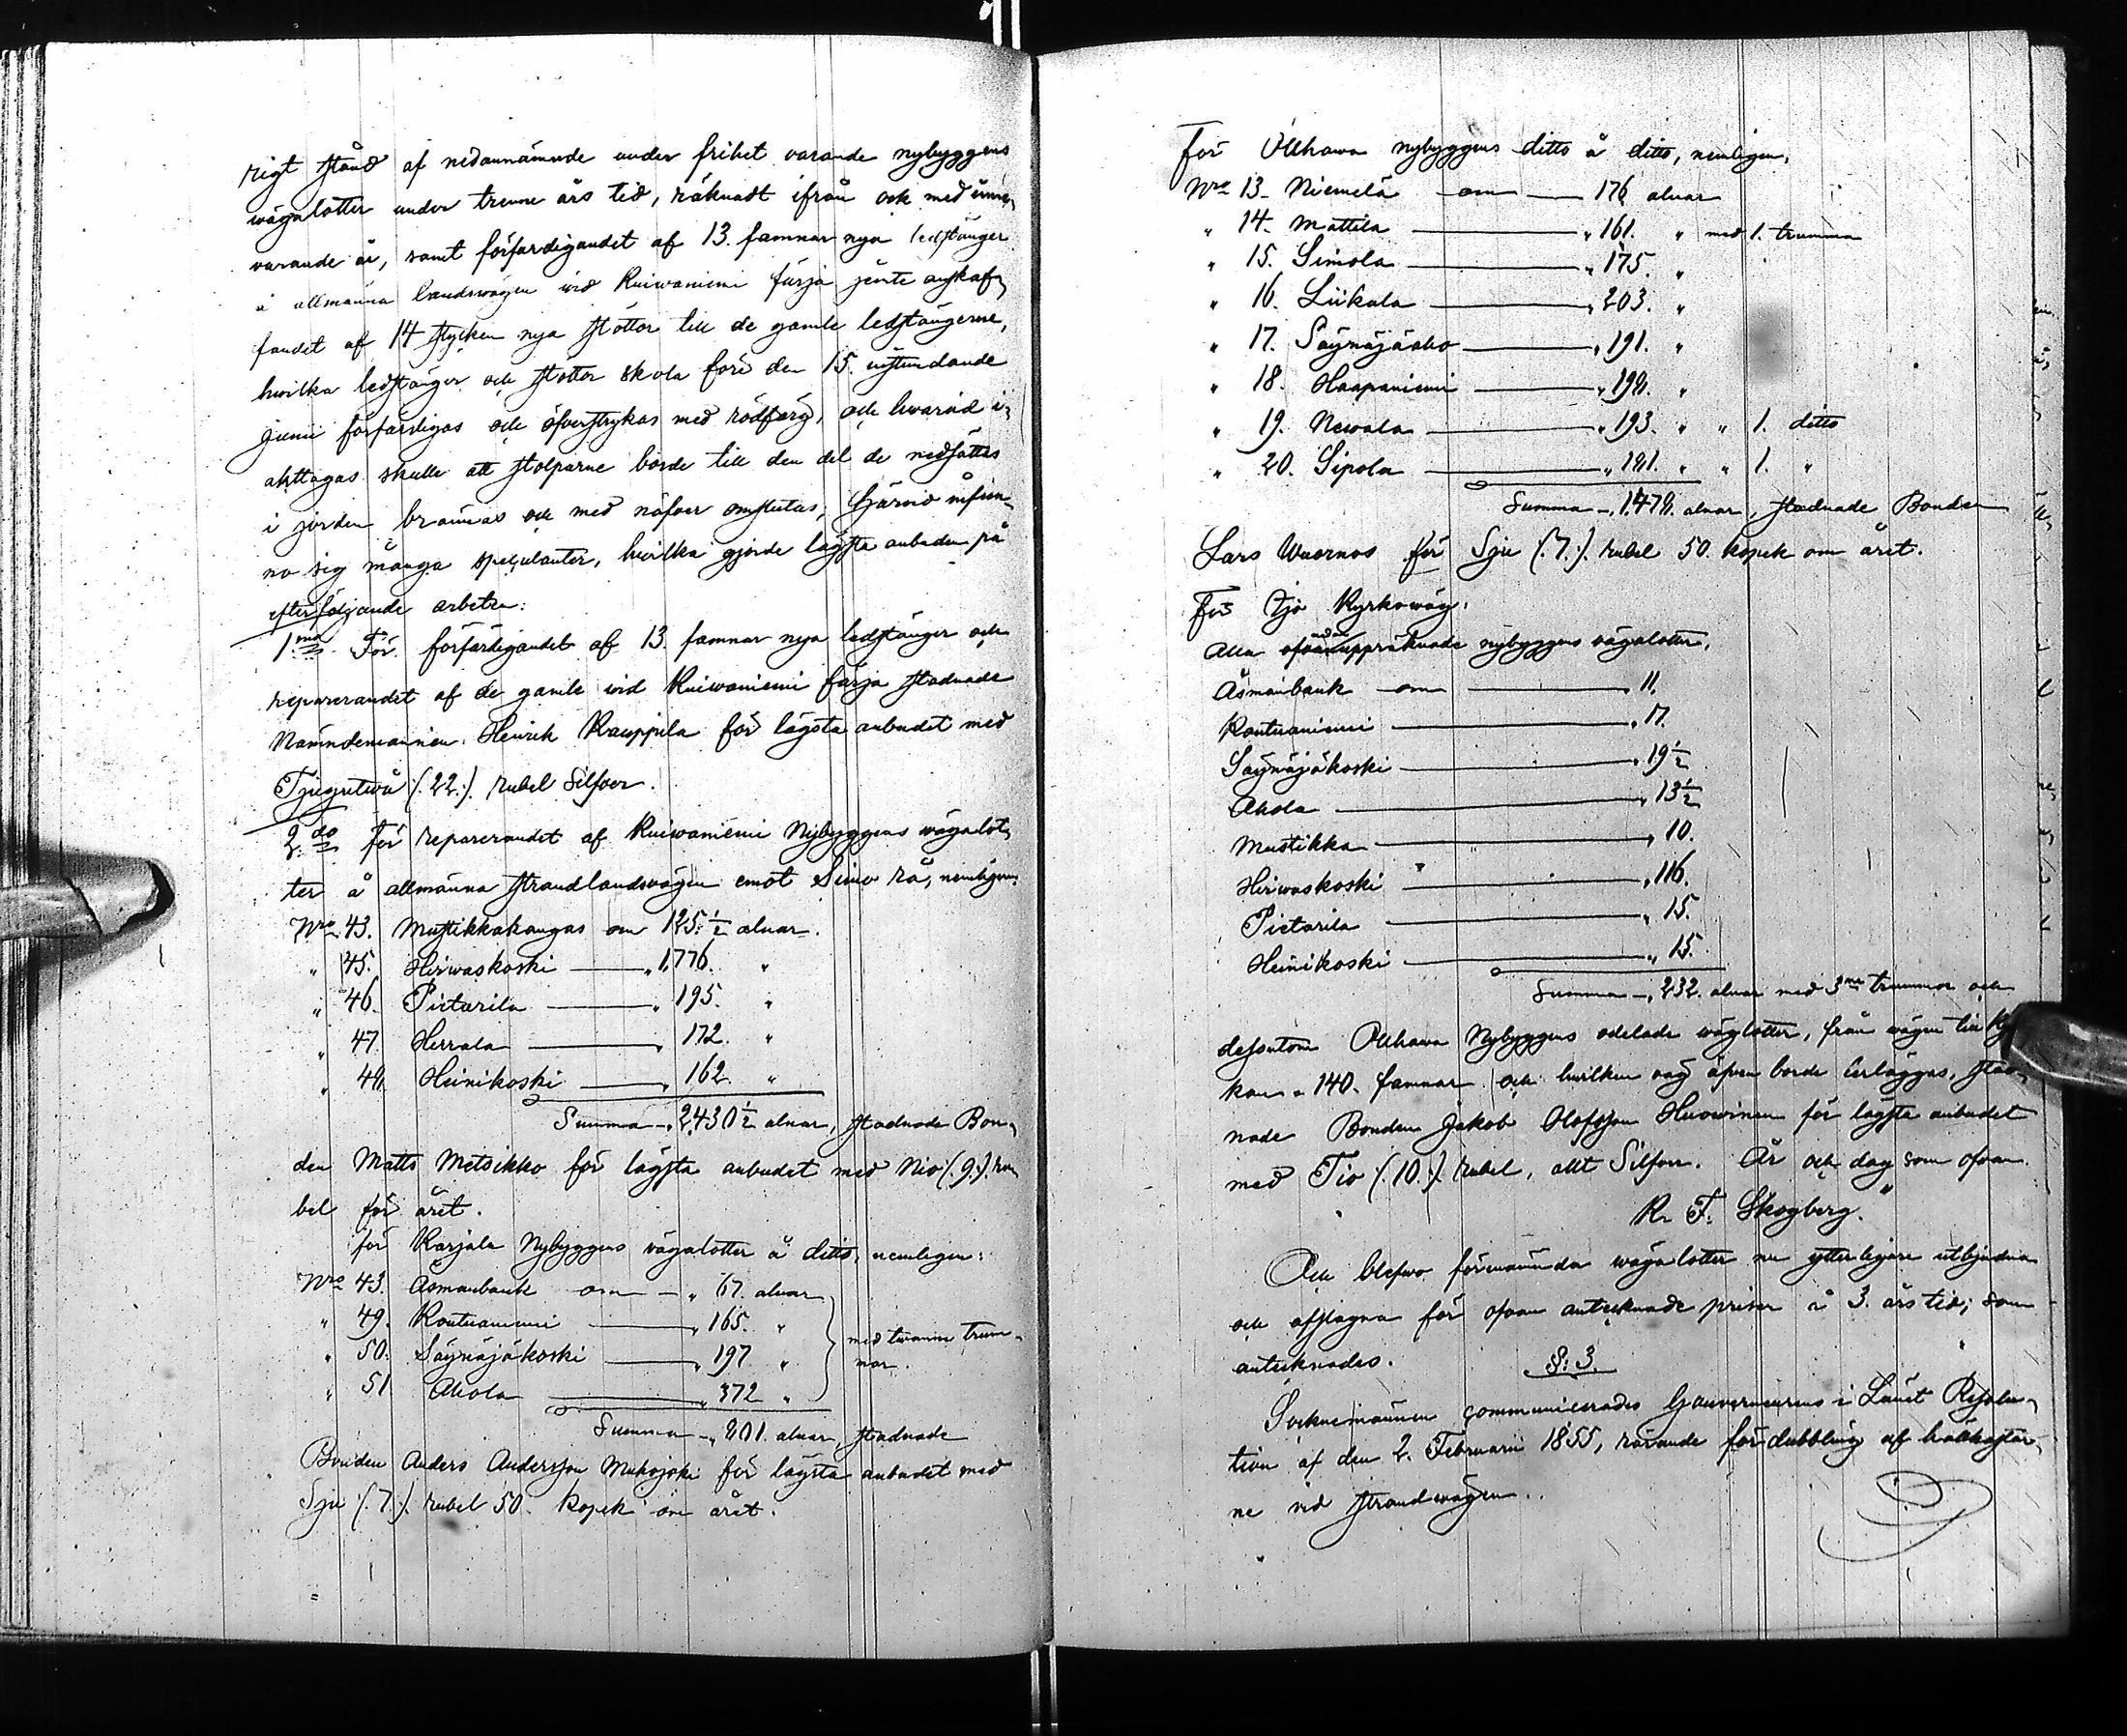 rigt stånd af nedannämnde under frihet varande nybyggens
wägalotter under trenne års tid, räknadt ifrån och med inne-
varande år, samt förfärdigandet af 13. famnar nya ledstänger
å allmänna landswägen wid Kuiwaniemi färja jemte anskaf-
fandet af 14 stycken nya stöttor till de gamle ledstängerne,
hvilka ledstänger och stöttor skola före den 15. nästundande
junii förfärdigas och öfverstrykas med rödfärg, och hwarvid i-
akttagas skulle att stolparne borde till den del de nedsättas
i jorden brännas och med näfver omslutas, Härvid infun-
no sig många speculanter, hvilka gjorde lägsta anbuden på
efterföljande arbeten:
1mo För förfärdigandet af 13. famnar nya ledstänger och
reparerandet af de gamle wid Kuiwaniemi färja stadnade
Nämndemannen Henrik Kauppila för lägsta anbudet med
Tjugutwå (:22.:) rubel Silfver.
2do för reparerandet af Kuiwaniemi Nybyggens wägalot-
ter å allmänna strandlandswägen emot Simo rå, nemligen:
Nro 43. Mustikkakangas om 125. 1/2 alnar.
" 45. Hirwaskoski — " 1,776. "
" 46. Pietarila — " 195. "
" 47. Herrala — " 172. "
" 48. Heinikoski — " 162. "
Summa — 2,430 1/2 alnar, stadnade Bon-
den Matts Metsikko för lägsta anbudet med Nio (:9.:) ru-
bel för året.
för Karjala Nybyggens vägalotter å ditto, nemligen:
Nro 43. Åsmanbank om — " 67. alnar
" 49. Koutuaniemi — " 165. "
" 50. Säynäjäkoski — " 197 " med twänne trum-
mor.
" 51 Ahola — " 372 "
Summa — 801. alnar, stadnade
Bonden Anders Andersson Muhojoki för lägsta anbudet med
Sju (:7.:) rubel 50. kopek om året.
För Olhawa nybyggens ditto å ditto, nemligen,
Nro 13. Niemelä om — 176 alnar
" 14. Mattila — " 161. " med 1. trumma
" 15. Simola — " 175. "
" 16. Liikala — " 203. "
" 17. Säynäjäaho — " 191. "
" 18. Haapaniemi — " 198. "
" 19. Newala — " 193. " " 1. ditto
" 20. Sipola — " 181. " " 1. "
Summa — 1,478. alnar, stadnade Bonden
Lars Wuornos för Sju (:7.:) rubel 50. kopek om året.
För Ijo Kyrkowäg.
Alla nedan uppräknade nybyggens vägalotter,
Åsmanbank om — " 11.
Koutuaniemi — " 17.
Säynäjäkoski — " 19 1/2
Ahola — " 13 1/2
Mustikka — " 10.
Hirwaskoski — " 116.
Pietarila — " 15.
Heinikoski — " 15.
Summa — 232. alnar med 3ne trummor och
dessutom Olhawa Nybyggens odelade wäglotter, från wägen till Kyr-
kan 140. famnar och hvilken väg äfven borde erläggas, stad-
nade Bonden Jakob Olofsson Huowinen för lägsta anbudet
med Tio (:10.:) rubel, allt Silfver. År och dag som ofvan.
K. F. Skogberg.
Och blefwo förenämnda wägalotter nu ytterligare utbjudna
och afslagna för ofvan antecknade priser å 3. års tid; som
antecknades.
§: 3.
Socknemännen communicerades Gouverneurens i Länet Resolu-
tion af den 2. Februarii 1855, rörande fördubbling af hållhästar-
ne vid strandwägen.